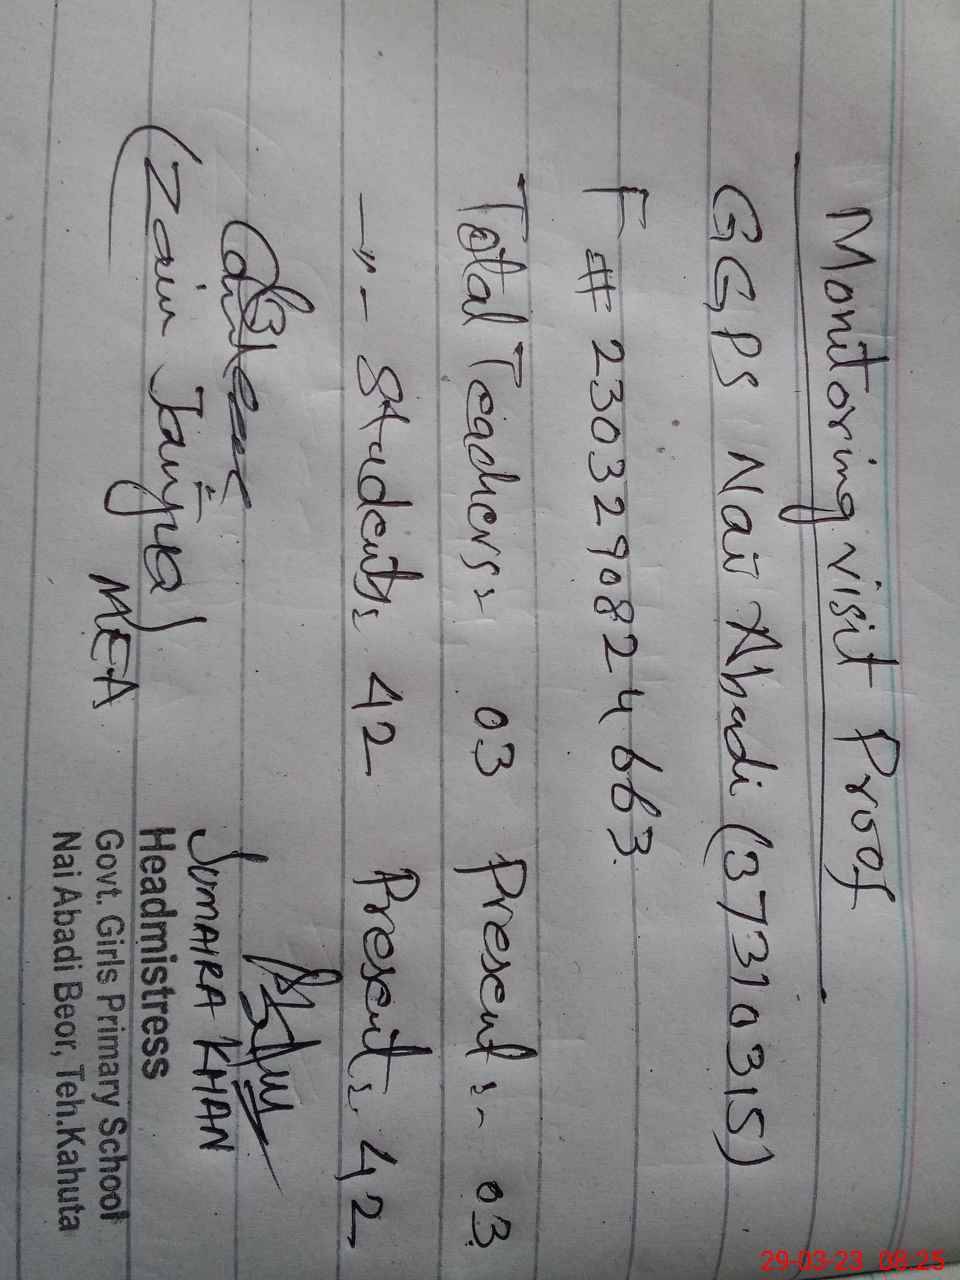 Monitoring visit Proof
GGPS Nai Abadi (37310315)
F # 2303290824663
Total Teachers:- 03 Present:- 03
—"- Students:- 42 Present:- 42
(Zain Janjua)
MEA
SUMAIRA KHAN
Headmistress
Govt. Girls Primary School
Nai Abadi Beor, Teh.Kahuta
29-03-23 08:25